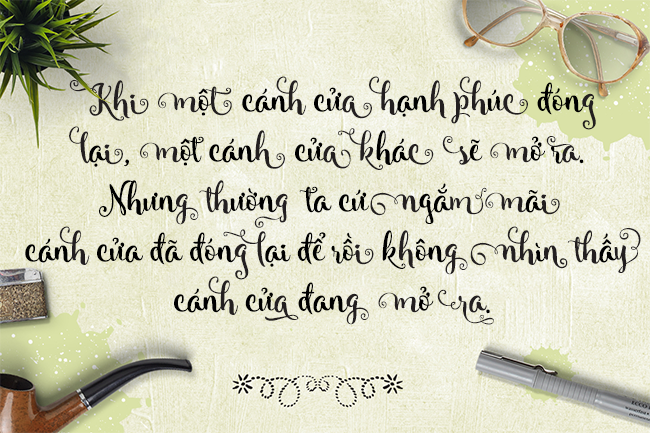 Khi một cánh cửa hạnh phúc đóng
lại, một cánh cửa khác sẽ mở ra.
Nhưng thường ta cứ ngắm mãi
cánh cửa đã đóng lại để rồi không nhìn thấy
cánh cửa đang mở ra.